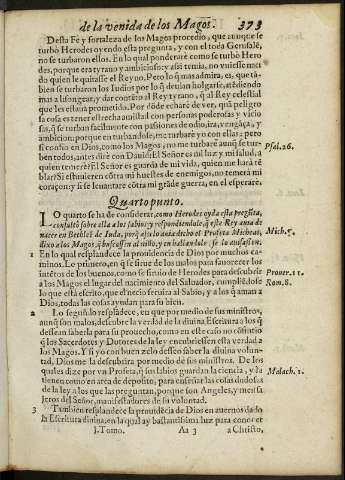 de la venida de los Magos. 373
Desta Fè y fortaleza de los Magos procedio, que aunque se
turbò Herodes oyendo esta pregunta, y con el toda Gerusalē,
no se turbaron ellos. En lo qual ponderarè como se turbò Hero
des, porque era tyrano y ambicioso: y assi temia, no viniesse me
dio quien le quitasse el Reyno. Pero lo q̄ mas admira, es, que tā-
bien se turbaron los Iudios por lo q̄ deuian holgarse, atēdiendo
mas a lisongear, y dar contēto al Rey tyrano, q̄ al Rey celestial
que les estaua prometido. Por dōde echarè de ver, quā peligro
sa cosa es tener estrecha amistad con personas poderosas y vicio
sas, q̄ se turban facilmente con passiones de odio, ira, vengāça, y
ambicion; porque en turbandose, me turbarè yo con ellas: pero
si confio en Dios, como los Magos, no me turbarè aunq̄ se tur-
ben todos, antes dirè con Dauid: El Señor es mi luz y mi salud, a
quien temerè? El Señor es guarda de mi vida, quien me harà tē
blar? Si estuuieren cōtra mi huestes de enemigos, no temerà mi
coraçon; y si se leuantare cōtra mi grāde guerra, en el esperarè.
Psal. 26.
Quarto punto.
LO quarto se ha de considerar, como Herodes oyda esta pregūta,
consultò sobre ella a los sabios: y respondiendole, q̄ este Rey auia de
nacer en Bethleē de Iuda, porq̄ assi lo auia dicho el Profeta Micheas,
dixo a los Magos, q̄ buscassen al niño, y en hallandolo se lo auisassen.
Mich. 5.
1 En lo qual resplandece la prouidencia de Dios por muchos ca-
minos. Lo primero, en q̄ se sirue de los malos para fauorecer los
intētos de los buenos, como se siruio de Herodes para descubrir
a los Magos el lugar del nacimiento del Saluador, cumpliēdose
lo que està escrito, que el necio seruira al Sabio, y a los q̄ aman a
Dios, todas las cosas ayudan para su bien.
Prouer. 11.
Rom. 8.
2 Lo segundo resplādece, en que por medio de sus ministros,
aunq̄ son malos, descubre la verdad de la diuina Escritura a los q̄
dessean saberla para su prouecho; como en este caso no cōsintio
q̄ los Sacerdotes y Dotores de la ley encubriessen esta verdad a
los Magos. Y si yo con buen zelo desseo saber la diuina volun-
tad, Dios me la descubrira por medio de sus ministros. De los
quales dize por vn Profeta, q̄ sus labios guardan la ciencia, y la
tienen como en area de deposito, para enseñar las cosas dudosas
de la ley a los que las preguntan, porque son Angeles, y mensa
jeros del Señor, manifestadores de su voluntad.
Malach. 2.
3 Tambien resplandece la prouidēcia de Dios en auernos dado
la Escritura diuina, en la qual ay bastantissima luz para conocer
I. Tomo. Aa 3 a Christo,